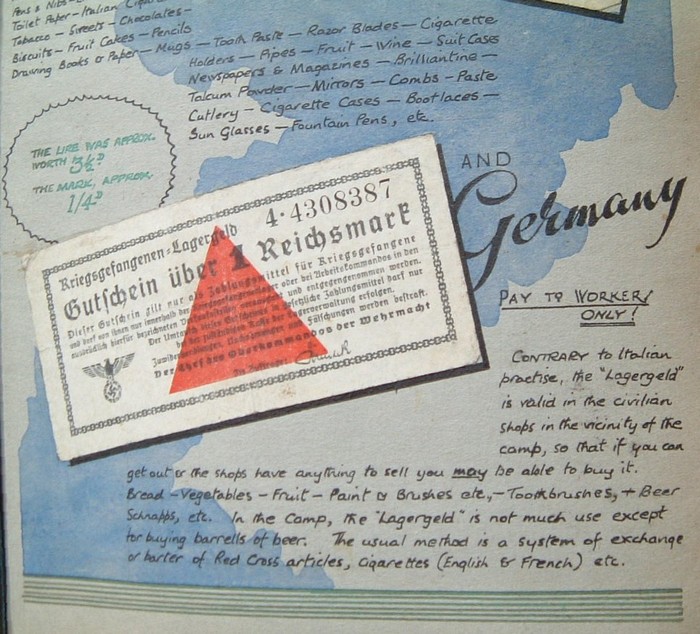 Pens & Nibs –
Toilet Paper – Italian
Tobacco – Sweets – Chocolates –
Biscuits – Fruit Cakes – Pencils
Drawing Books & Paper – Mugs – Tooth Paste – Razor Blades – Cigarette
Holders – Pipes – Fruit – Wine – Suit Cases
Newspapers & Magazines – Brilliantine –
Talcum Powder – Mirrors – Combs – Paste
Cutlery – Cigarette Cases – Bootlaces –
Sun Glasses – Fountain Pens, etc.
THE LIRE WAS APPROX.
WORTH 3½D
THE MARK, APPROX.
1/4D
AND
Germany
4·4308387
Kriegsgefangenen-Lagergeld
Gutschein über 1 Reichsmark
Dieser Gutschein gilt nur als Zahlungsmittel für Kriegsgefangene
und darf von ihnen nur innerhalb der Kriegsgefangenenlager oder bei Arbeitskommandos in den
ausdrücklich hierfür bezeichneten Verkaufsstellen verausgabt und entgegengenommen werden.
Der Umtausch dieses Gutscheines in gesetzliche Zahlungsmittel darf nur
bei der zuständigen Kasse der Lagerverwaltung erfolgen.
Zuwiderhandlungen, Nachahmungen und Fälschungen werden bestraft.
Der Chef des Oberkommandos der Wehrmacht
Im Auftrage:
PAY TO WORKERS
ONLY!
CONTRARY to Italian
practise, the "Lagergeld"
is valid in the civilian
shops in the vicinity of the
camp, so that if you can
get out & the shops have anything to sell you may be able to buy it.
Bread – Vegetables – Fruit – Paint & Brushes etc, – Toothbrushes, + Beer
Schnapps, etc. In the Camp, the "Lagergeld" is not much use except
for buying barrells of beer. The usual method is a system of exchange
or barter of Red Cross articles, cigarettes (English & French) etc.